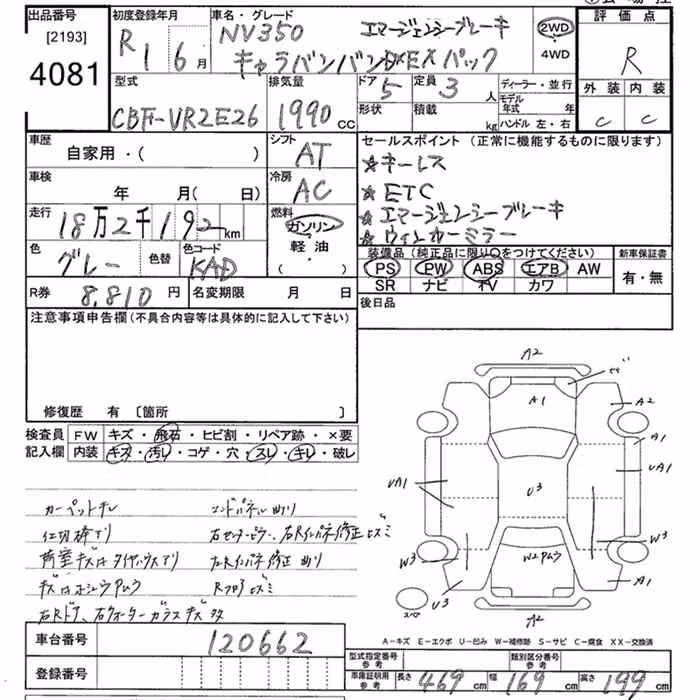 出品番号
[2193]
4081
初度登録年月
R 1 6月
車名・グレード
NV350 エマージェンシーブレーキ
キャラバンバンDX EXパック
2WD
4WD
評価点
R
外装 内装
C C
型式
CBF-VR2E26
排気量
1990 cc
ドア 5
定員 3 人
形状
積載 kg
ディーラー・並行
モデル年式 年
ハンドル 左・右
車歴
自家用・( )
シフト
AT
セールスポイント (正常に機能するものに限ります)
☆キーレス
☆ETC
☆エマージェンシーブレーキ
☆ウインカーミラー
車検
年 月( 日)
冷房
AC
走行
18万2千192km
燃料
ガソリン
軽・油
・( )
色
グレー
色替
色コード
KAD
装備品 (純正品に限り○をつけてください)
PS PW ABS エアB AW
SR ナビ TV カワ
新車保証書
有・無
R券 8,810円
名変期限 月 日
後日品
注意事項申告欄(不具合内容等は具体的に記入して下さい)
修復歴 有 〔箇所 〕
検査員
記入欄
FW キズ・飛石・ヒビ割・リペア跡・×要
内装 キズ・汚レ・コゲ・穴・スレ・キレ・破レ
カーペットキレ
エンドパネル曲り
仕切棒アリ
荷室キズ
右Rドア、右クォーターガラスキズ多
A2
A1
A2
A1
UA1
UA1
U3
W3
W3
W2
U3
A1
A2
A-キズ E-エクボ U-凹み W-補修跡 S-サビ C-腐食 XX-交換済
車台番号 120662
登録番号
型式指定番号
参考
類別区分番号
参考
車庫証明用
参考
長さ 469cm
幅 169cm
高さ 199cm